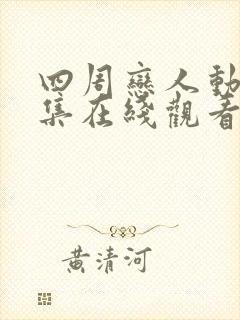 四周戀人動
集在綫觀看
黃清河